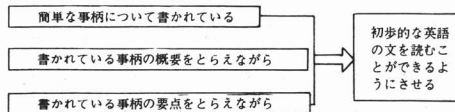 簡単な事柄について書かれている
書かれている事柄の概要をとらえながら
書かれている事柄の要点をとらえながら
初歩的な英語
の文を読むこ
とができるよ
うにさせる